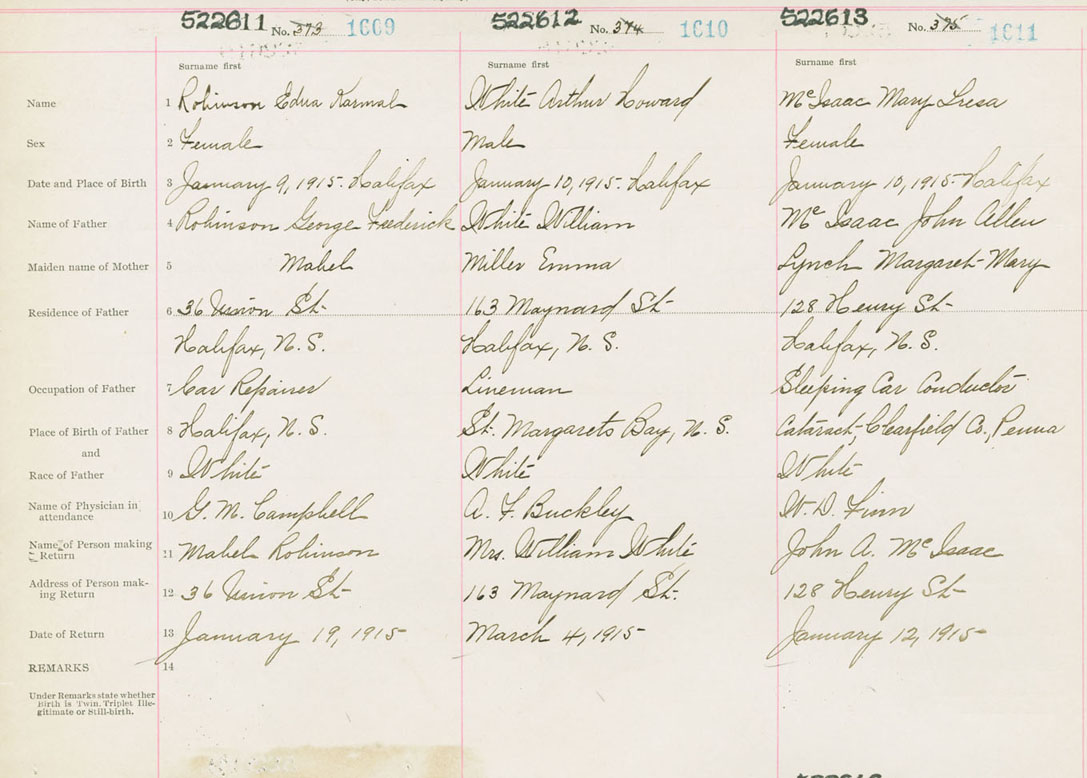 522611 No. 373 1009 522612 No. 374 1010 522613 No. 375 1011
Surname first Surname first Surname first
Name 1 Robinson Edna Karmal White Arthur Howard McIsaac Mary Tresa
Sex 2 Female Male Female
Date and Place of Birth 3 January 9, 1915. Halifax January 10, 1915. Halifax January 10, 1915. Halifax
Name of Father 4 Robinson George Frederick White William Mc Isaac John Allen
Maiden name of Mother 5 Mabel Miller Emma Lynch Margaret Mary
Residence of Father 6 36 Union St 163 Maynard St 128 Henry St
Halifax, N. S. Halifax, N. S. Halifax, N. S.
Occupation of Father 7 Car Repairer Lineman Sleeping Car Conductor
Place of Birth of Father 8 Halifax, N. S. St. Margarets Bay, N. S. Cataract, Clearfield Co., Penna
and
Race of Father 9 White White White
Name of Physician in attendance 10 G. M. Campbell A. F. Buckley W. D. Finn
Name of Person making Return 11 Mabel Robinson Mrs. William White John A. McIsaac
Address of Person making Return 12 36 Union St 163 Maynard St. 128 Henry St
Date of Return 13 January 19, 1915 March 4, 1915 January 12, 1915
REMARKS 14
Under Remarks state whether
Birth is Twin, Triplet Ille-
gitimate or Still-birth.